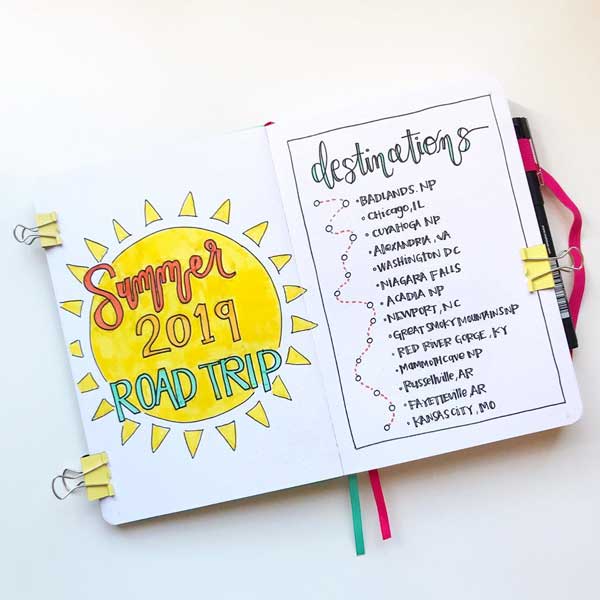 Summer
2019
ROAD TRIP
destinations
• BADLANDS. NP
• CHICAGO, IL
• CUYAHOGA NP
• ALEXANDRIA, VA
• WASHINGTON DC
• NIAGARA FALLS
• ACADIA NP
• NEWPORT, NC
• GREAT SMOKY MOUNTAINS NP
• RED RIVER GORGE, KY
• MAMMOTH CAVE NP
• RUSSELLVILLE, AR
• FAYETTEVILLE AR
• KANSAS CITY, MO